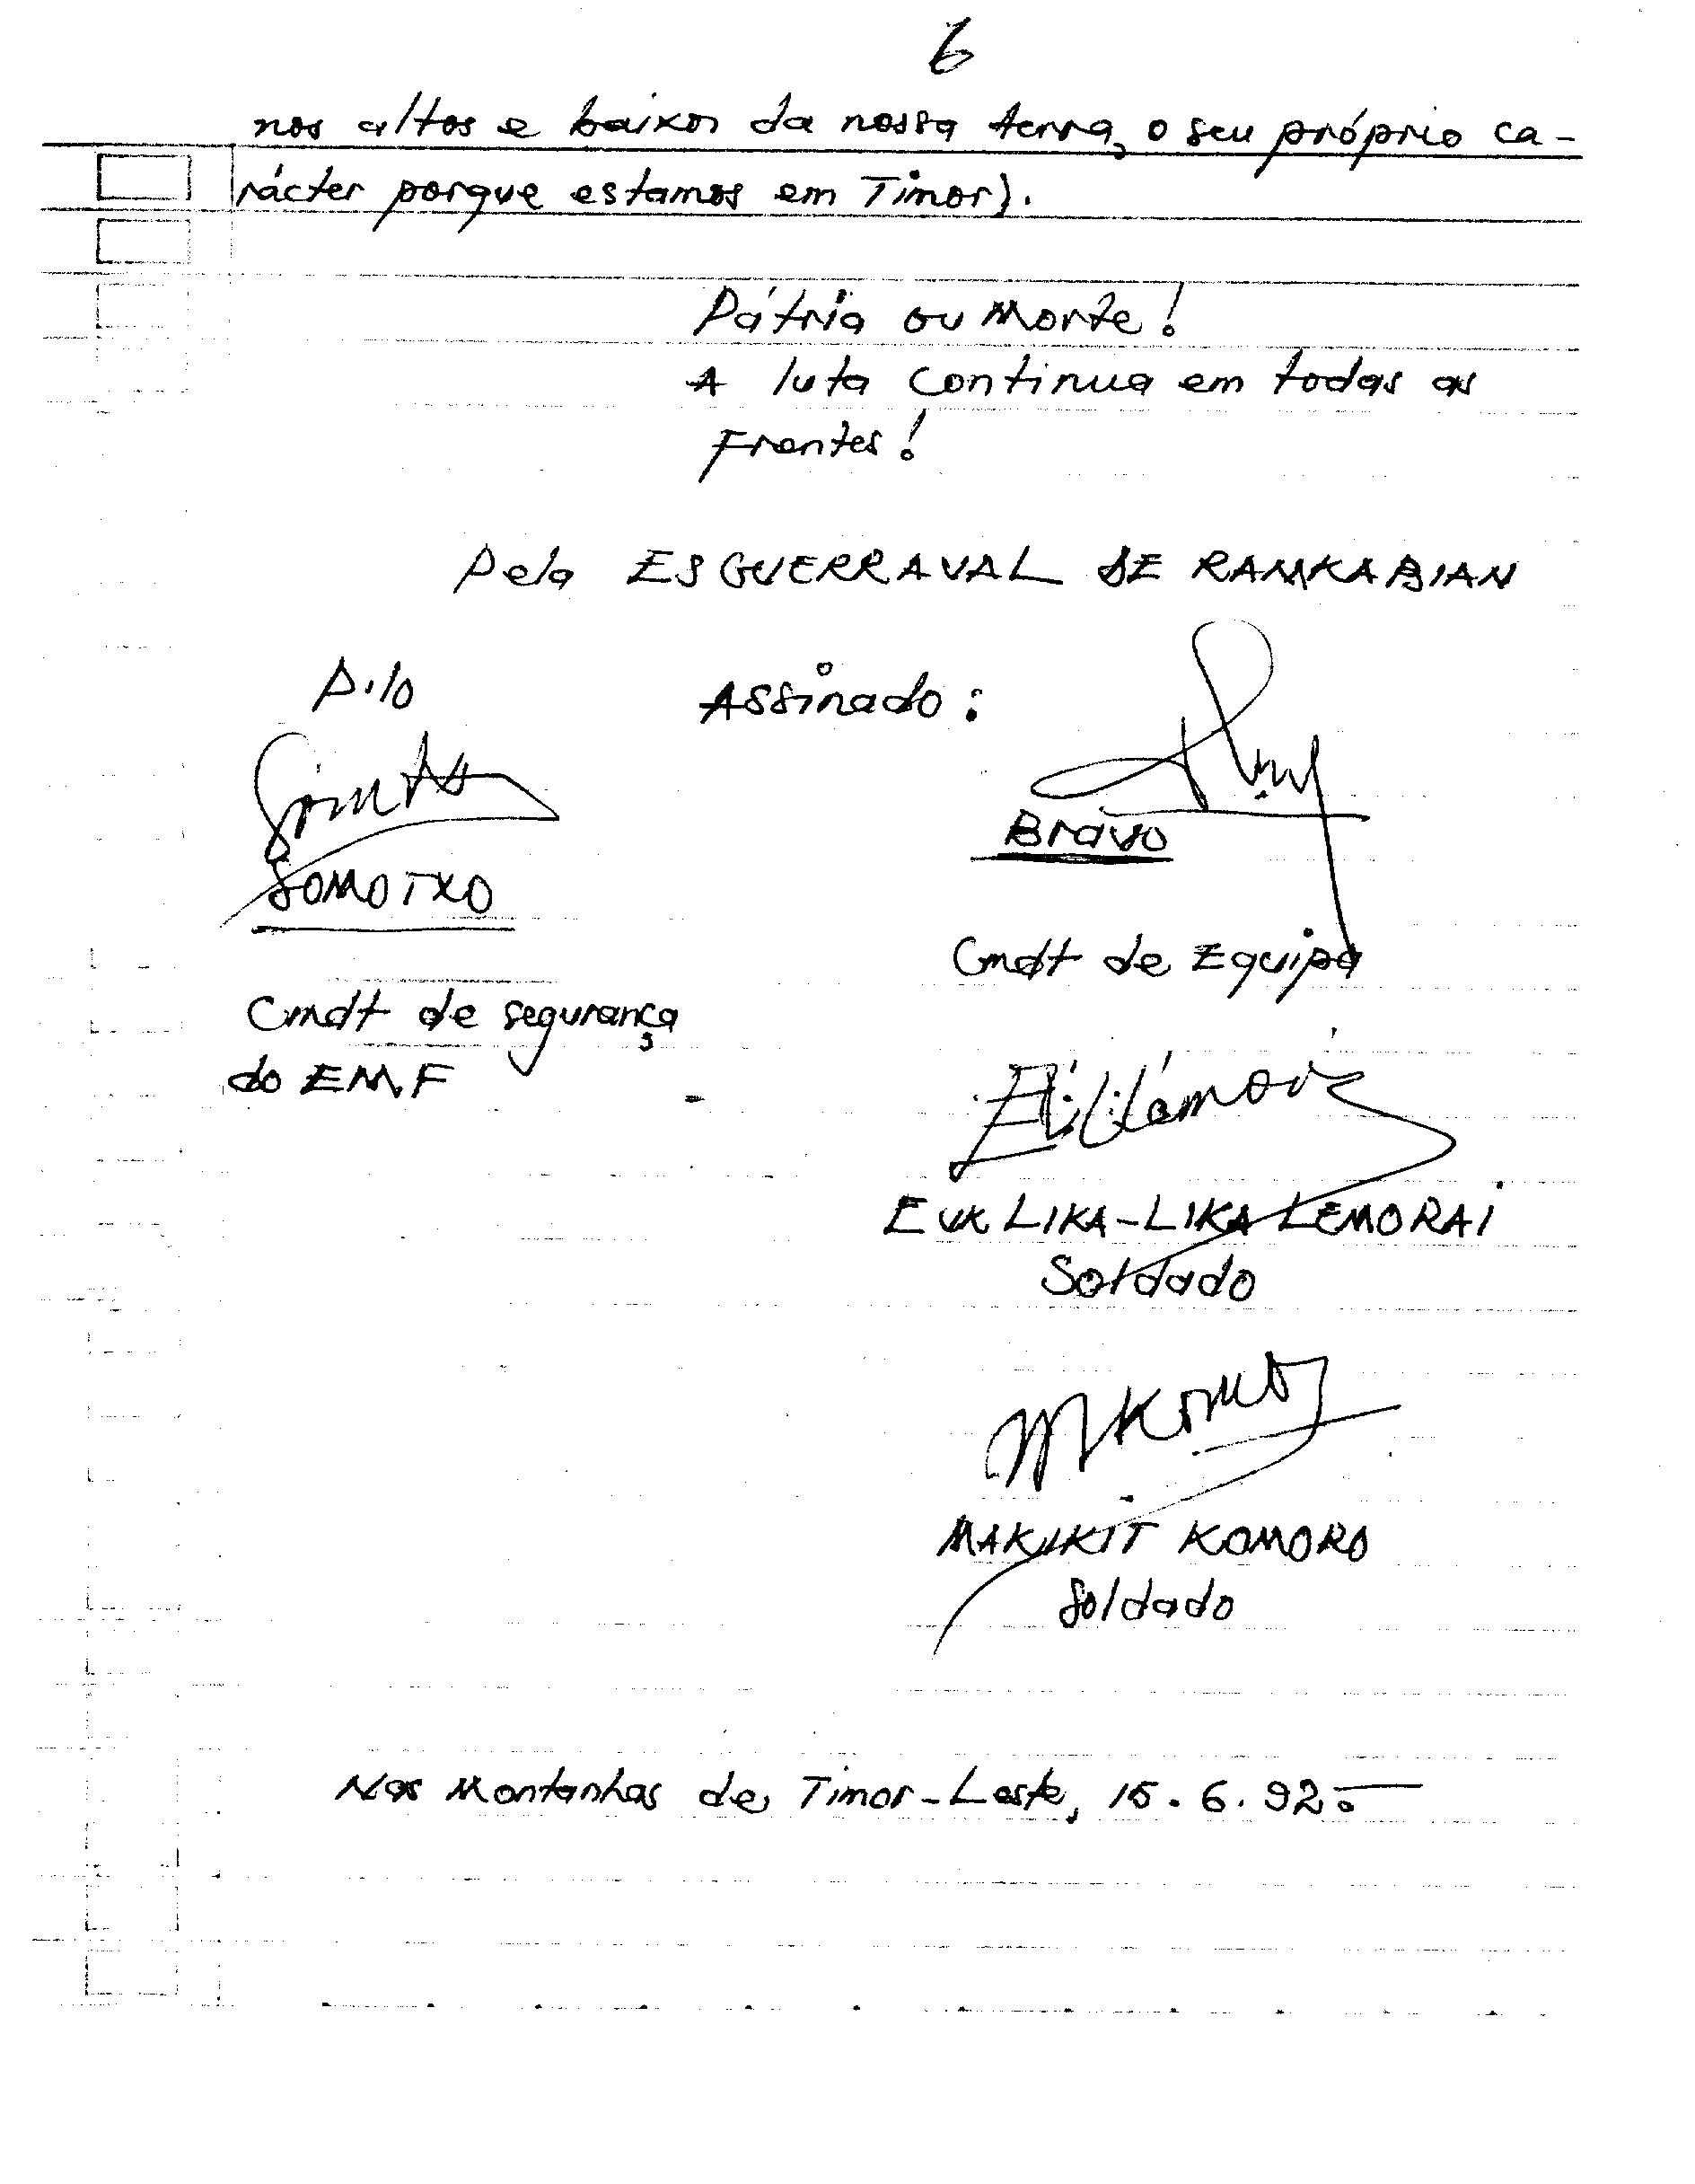 6
nos altos e baixos da nossa terra, o seu próprio ca-
rácter porque estamos em Timor).
Pátria ou Morte!
A luta continua em todas as
Frentes!
Pela ESGUERRAVAL DE RAMKABIAN
P.lo
Assinado:
SOMOTXO
Cmdt de segurança
do EM.F
Bravo
Cmdt de Equipa
LIKA-LIKA LEMORAI
Soldado
MAKIKIT KOMORO
Soldado
Nas Montanhas de Timor-Leste, 15.6.92.